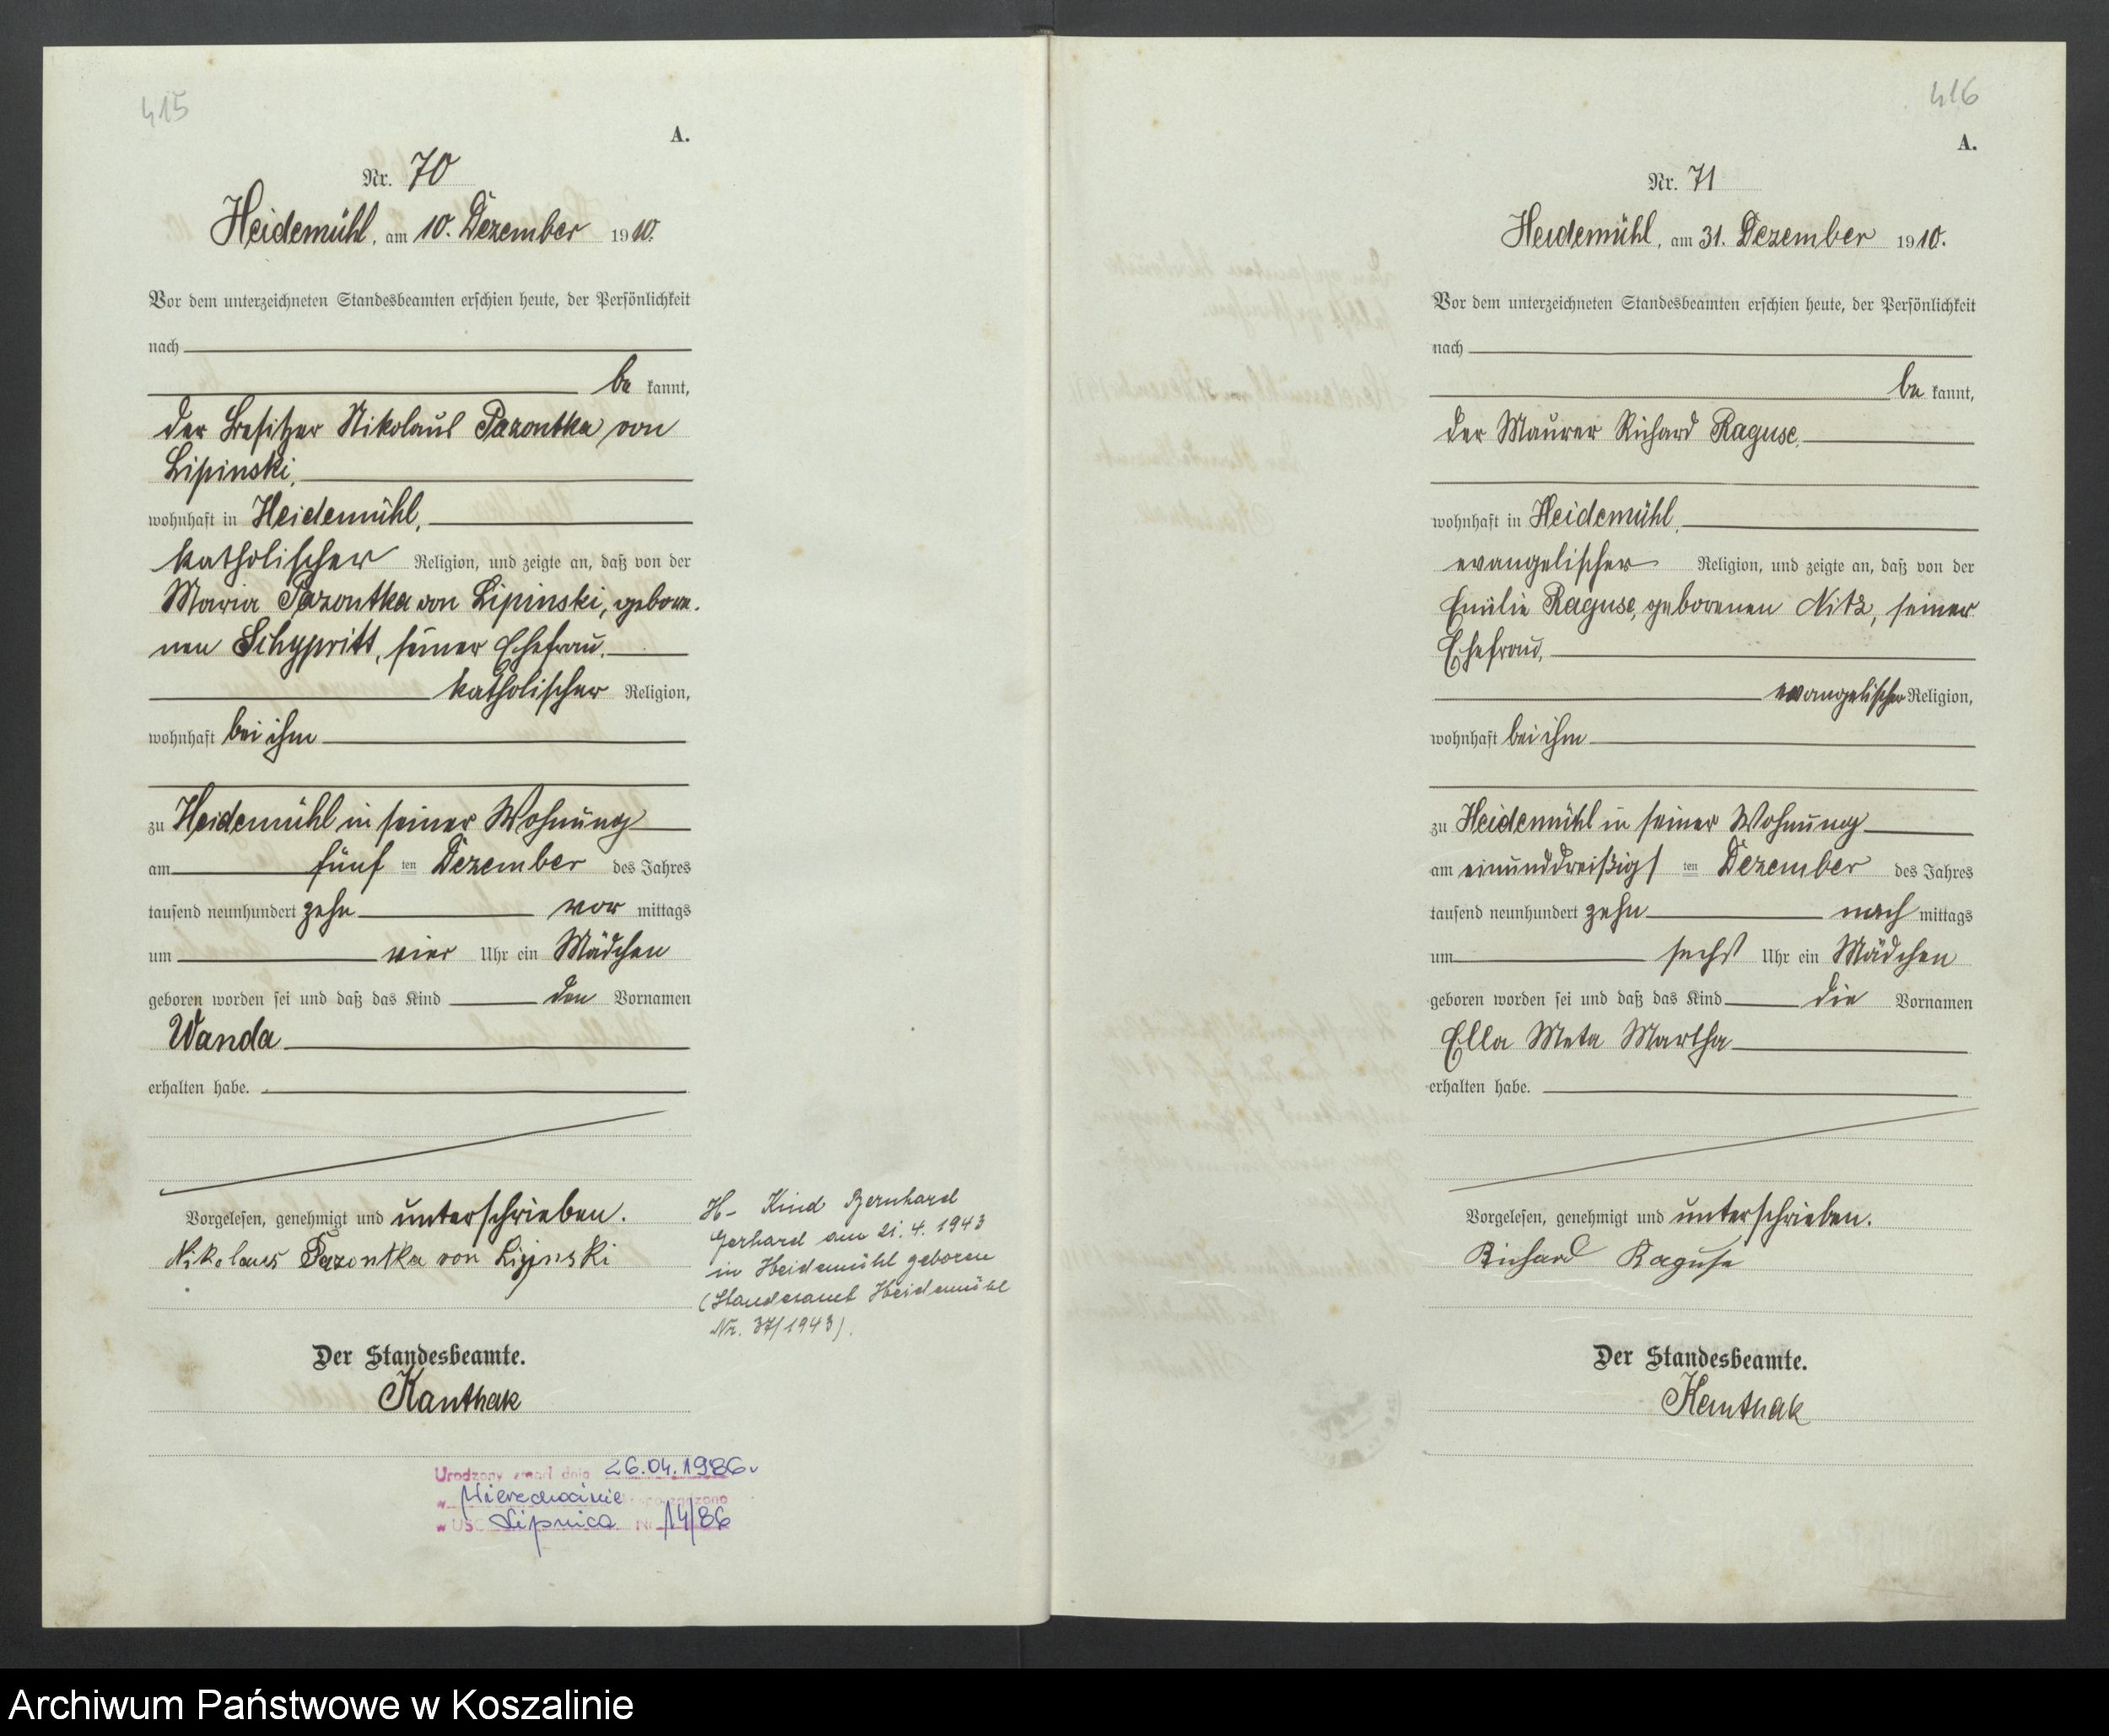 415
A.
Nr. 70
Heidemühl, am 10. Dezember 1910.
Vor dem unterzeichneten Standesbeamten erschien heute, der Persönlichkeit
nach
be kannt,
der Besitzer Nikolaus Pazontka von
Lipinski,
wohnhaft in Heidemühl,
katholischer Religion, und zeigte an, daß von der
Maria Pazontka von Lipinski, gebore-
nen Schypritt, seiner Ehefrau,
katholischer Religion,
wohnhaft bei ihm
zu Heidemühl in seiner Wohnung
am fünf ten Dezember des Jahres
tausend neunhundert zehn vor mittags
um vier Uhr ein Mädchen
geboren worden sei und daß das Kind den Vornamen
Wanda
erhalten habe.
Vorgelesen, genehmigt und unterschrieben.
Nikolaus Pazontka von Lipinski
H- Kind Bernhard
Gerhard am 21.4.1943
in Heidemühl geboren
(Standesamt Heidemühl
Nr. 37/1943).
Der Standesbeamte.
Kanthak
zmarł dnia 26.04.1986
w
w USC Lipnica Nr 14/86
416
A.
Nr. 71
Heidemühl, am 31. Dezember 1910.
Vor dem unterzeichneten Standesbeamten erschien heute, der Persönlichkeit
nach
be kannt,
der Maurer Richard Raguse,
wohnhaft in Heidemühl,
evangelischer Religion, und zeigte an, daß von der
Emilie Raguse, geborenen Nitz, seiner
Ehefrau,
evangelischer Religion,
wohnhaft bei ihm
zu Heidemühl in seiner Wohnung
am einunddreißigs ten Dezember des Jahres
tausend neunhundert zehn nach mittags
um sechs Uhr ein Mädchen
geboren worden sei und daß das Kind die Vornamen
Ella Meta Martha
erhalten habe.
Vorgelesen, genehmigt und unterschrieben.
Richard Raguse
Der Standesbeamte.
Kanthak
Archiwum Państwowe w Koszalinie